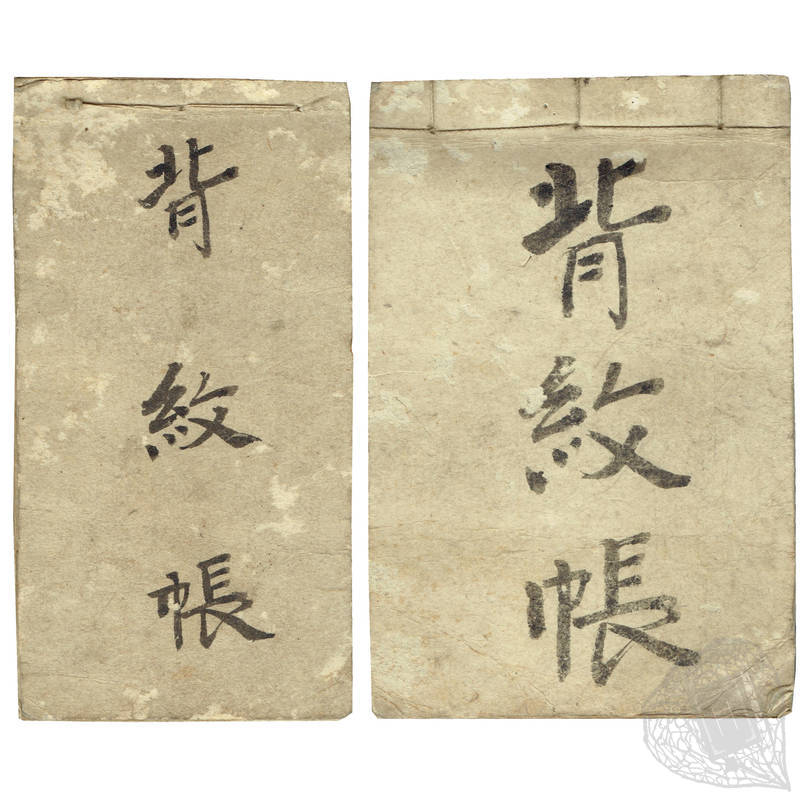 背紋帳
背紋帳